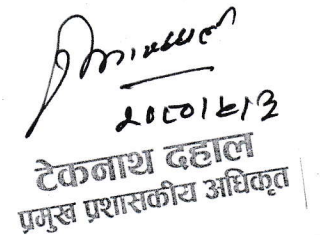 २०८०।८।३
टेकनाथ दहाल
प्रमुख प्रशासकीय अधिकृत